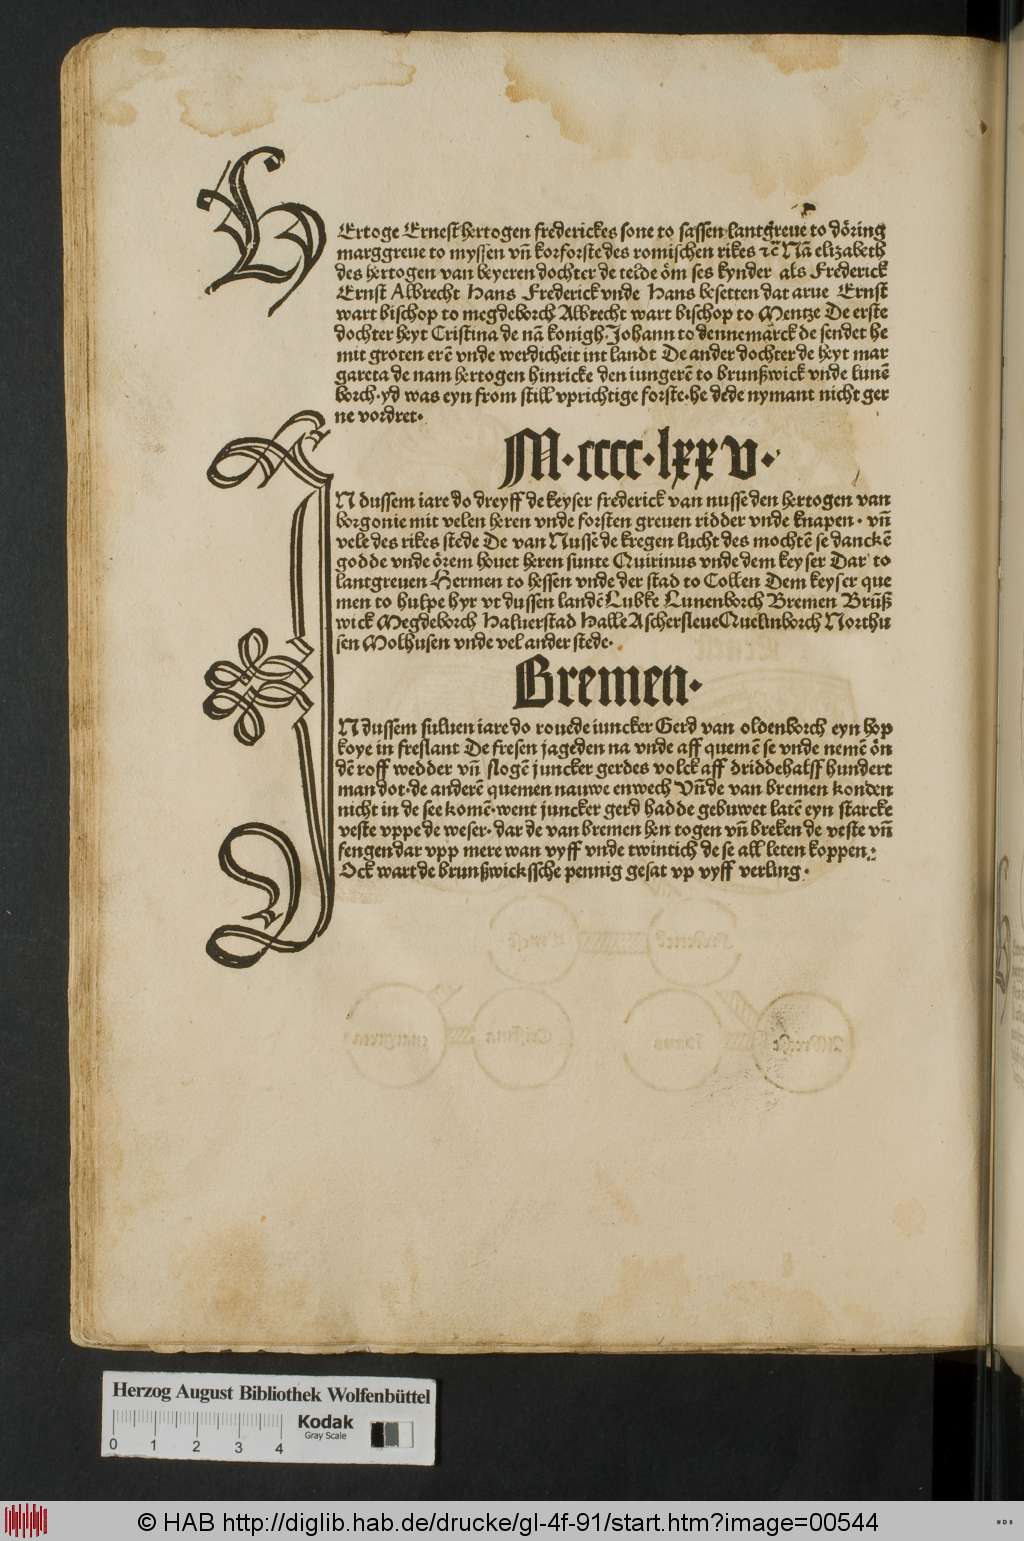 HErtoge Ernest hertogen frederickes sone to sassen lantgreue to döring
marggreue to myssen vñ korforste des romischen rikes ⁊c̃ Nã elizabeth
des hertogen van beyeren dochter de telde öm ses kynder als Frederick
Ernst Albrecht Hans Frederick vnde Hans besetten dat arue Ernst
wart bischop to megdeborch Albrecht wart bischop to Mentze De erste
dochter heyt Cristina de nã konigh Johann to dennemarck de sendet he
mit groten erẽ vnde werdicheit int landt De ander dochter de heyt mar
gareta de nam hertogen hinricke den iungerẽ to brunßwick vnde lunẽ
borch·yd was eyn from still vprichtige forste·he dede nymant nicht ger
ne vordret·
M·cccc·lxxv·
IN dussem iare do dreyff de keyser frederick van nusse den hertogen van
borgonie mit velen heren vnde forsten greuen ridder vnde knapen· vñ
vele des rikes stede De van Nusse de kregen lucht des mochtẽ se danckẽ
godde vnde örem houet heren sunte Quirinus vnde dem keyser Dar to
lantgreuen Hermen to hessen vnde der stad to Collen Dem keyser que
men to hulpe hyr vt dussen landẽ Lubke Lunenborch Bremen Brũß
wick Megdeborch Haluerstad Halle Aschersleue Quelinborch Northu
sen Molhusen vnde vel ander stede·
Bremen·
IN dussem suluen iare do rouede iuncker Gerd van oldenborch eyn hop
koye in freslant De fresen jageden na vnde aff quemẽ se vnde nemẽ ön
dẽ roff wedder vñ slogẽ juncker gerdes volck aff driddehalff hundert
man dot·de anderẽ quemen nauwe enwech Vñde van bremen konden
nicht in de see komẽ·went juncker gerd hadde gebuwet latẽ eyn starcke
veste vppe de weser· dar de van bremen hen togen vñ breken de veste vñ
fengen dar vpp mere wan vyff vnde twintich de se all leten koppen·:
Ock wart de brunßwickssche pennig gesat vp vyff verling·
Herzog August Bibliothek Wolfenbüttel
Kodak
Gray Scale
0 1 2 3 4
© HAB http://diglib.hab.de/drucke/gl-4f-91/start.htm?image=00544